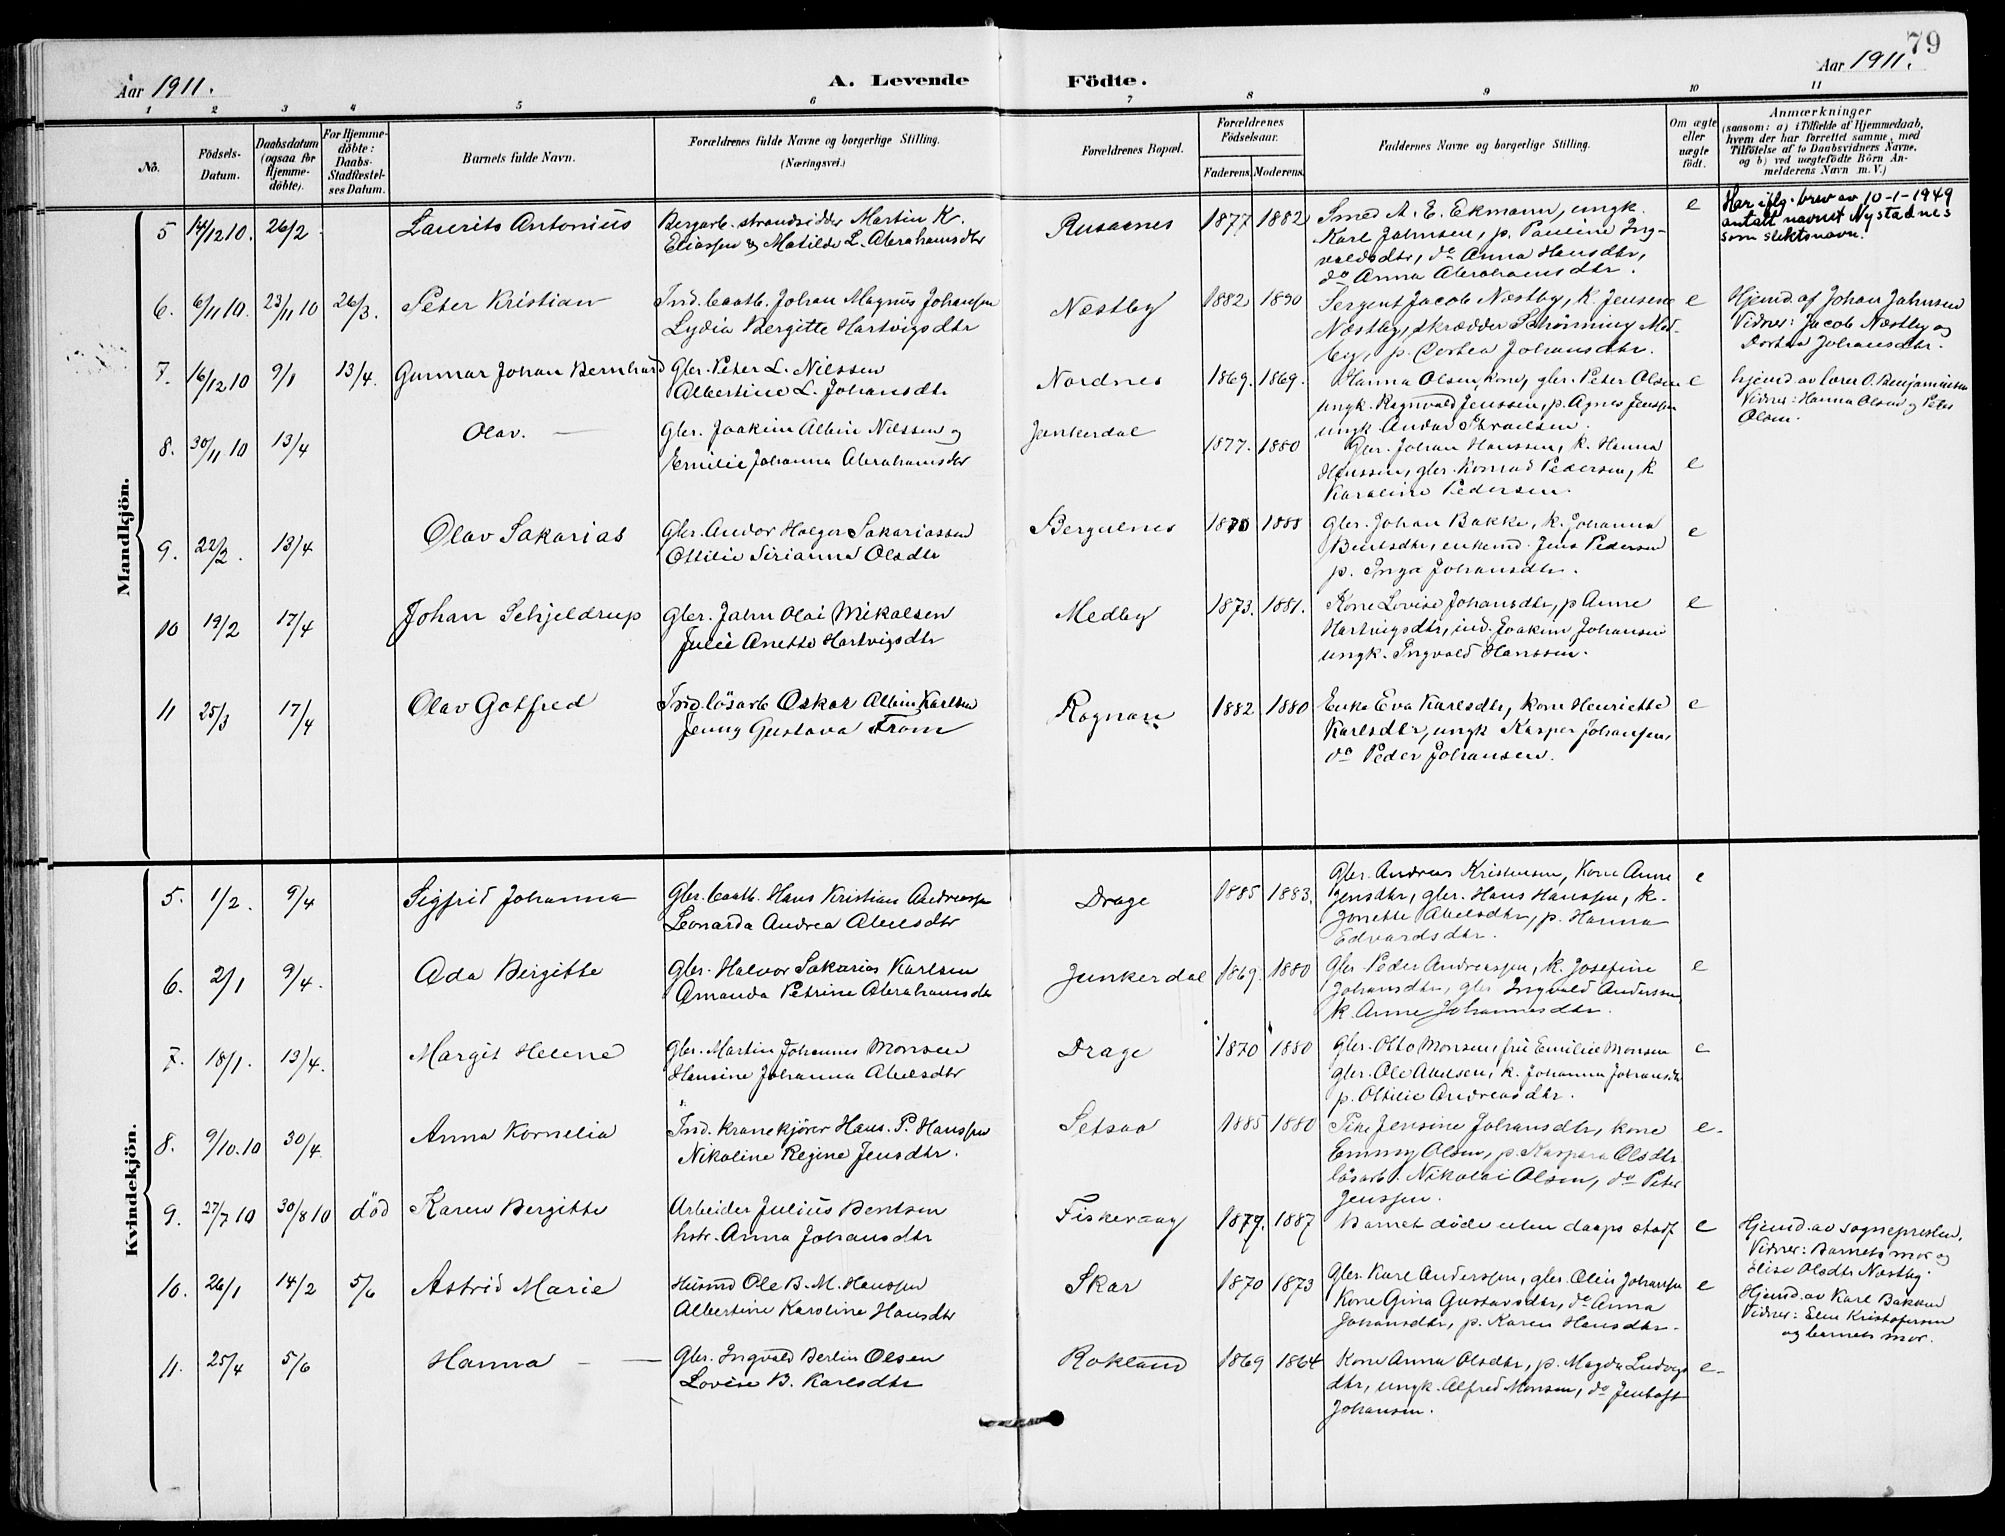 79
Aar 1911.
A. Levende
Födte.
Aar 1911.
1 2 3 4 5 6 7 8 9 10 11
No.
Födsels-
Datum.
Daabsdatum
(ogsaa for
Hjemme-
döbte).
For Hjemme-
döbte:
Daabs-
Stadfæstel-
ses Datum.
Barnets fulde Navn.
Forældrenes fulde Navne og borgerlige Stilling.
(Næringsvei.)
Forældrenes Bopæl.
Forældrenes
Födselsaar.
Faderens. Moderens.
Faddernes Navne og borgerlige Stilling.
Om ægte
eller
uægte
födt.
Anmærkninger
(saasom: a) i Tilfælde af Hjemmedaab,
hvem der har forrettet samme, med
Tilföielse af to Daabsvidners Navne,
og b) ved uægtefödte Börn An-
melderens Navn m. V.)
Mandkjön.
5 14/12 10. 26/2 Laurits Antonius
Bergarb. strandsidder Martin K.
Eliassen & Matilde L. Abrahamsdtr
Rusaanes 1877 1882
Smed A. E. Ekmann, ungk.
Karl Jahnsen, p. Pauline Ing-
valdsdtr, do Anna Hansdtr,
do Anna Abrahamsdtr.
e
Her iflg. brev av 10-1-1949
antatt navnet Nystadnes
som slektsnavn.
6. 6/11 10. 23/11 10 26/3. Peter Kristian
Ind. Baatb. Johan Magnus Johansen
Lydia Bergitte Hartvigsdtr
Næstby 1882 1890
Sergent Jacob Næstby, k. Jensine
Næstby, skrædder Schönning Med-
by, p. Dortea Johansdtr.
e
Hjemd af Johan Jahnsen
Vidner: Jacob Næstby og
Dortea Johansdtr.
7. 16/12 10 9/1 13/4. Gunnar Johan Bernhard
Gbr. Peter L. Nilssen
Albertine L. Johansdtr
Nordnes 1869. 1869.
Hanna Olsen, kone, gbr. Peter Olsen
ungk. Ragnvald Jenssen, p. Agnes Jenssen
ungk. Andor Israelsen.
e
hjemd. av lærer O. Benjaminsen
Vidner: Hanna Olsen og Peter
Olsen.
8. 30/11 10 13/4 Olav.
Gbr. Joakim Albin Nilssen og
Emilie Johanna Abrahamsdtr
Junkerdal 1877. 1880
Gbr. Johan Hanssen, k. Hanna
Hanssen, gbr. Konrad Pedersen, k
Karoline Pedersen.
e
9. 22/2. 13/4 Olav Sakarias
Gbr. Andor Holger Sakariassen
Ottilie Sirianna Olsdtr
Bergulnes 1888
Gbr. Johan Bakke, k. Johanna
Bentsdtr, enkemd. Jens Pedersen
p. Inga Johansdtr.
e
10 19/2 17/4 Johan Schjeldrup
Gbr. Jahn Olai Mikalsen
Julie Anette Hartvigsdtr
Medby 1873. 1881.
Kone Lovise Johansdtr, p Anne
Hartvigsdtr, ind. Joakim Johansen
ungk. Ingvald Hanssen.
e
11 25/3 17/4 Olav Gotfred
Ind. lösarb Oskar Albin Karlsen
Jenny Gustava From
Rognan 1882 1880
Enke Eva Karlsdtr, kone Henriette
Karlsdtr, ungk Kasper Johansen,
do Peder Johansen.
e
Kvindekjön.
5. 1/2. 9/4 Sigfrid Johanna
Gbr. baatb. Hans Kristian Andreassen
Leonarda Andrea Abelsdtr
Drage 1885 1883.
Gbr. Andreas Kristensen, Kone Anne
Jensdtr, gbr. Hans Hanssen, k.
Jonette Abelsdtr, p. Hanna
Edvardsdtr.
e
6. 2/1 9/4. Ada Bergitte
Gbr. Halvor Sakarias Karlsen
Amanda Petrine Abrahamsdtr
Junkerdal 1869. 1880
Gbr. Peder Andreassen, k. Josefine
Johansdtr, gbr Ingvald Anderssen
k. Anne Johannesdtr.
e
7. 18/1. 13/4. Margit Helene
Gbr. Martin Johannes Monsen
Hansine Johanna Abelsdtr
Drage 1870 1880
Gbr. Otto Monsen, fru Emilie Monsen
gbr. Ole Abelsen, k. Johanna Johansdtr
p. Ottilie Andreasdtr.
e
8. 9/10.10 30/4. Anna Kornelia
Ind. kranekjörer Hans. P. Hanssen
Nikoline Regine Jensdtr.
Setsaa 1885 1880
Pike Jensine Johansdtr, kone
Emmy Olsen, p. Kaspara Olsdtr
lösarb. Nikolai Olsen, do Peter
Jenssen.
e.
9. 27/7 10 30/8 10 död Karen Bergitte
Arbeider Julius Bentsen
hstr. Anna Johansdtr
Fiskevaag 1879. 1887
Barnet döde uten daaps stadf
e
Hjemd. av sognepresten.
Vidner: Barnets mor og
Elise Olsdtr Næstby.
10. 26/1 14/2 5/6 Astrid Marie
Husmd Ole B. M. Hanssen
Albertine Karoline Hansdtr
Skar 1870 1873
Gbr. Karl Anderssen, gbr. Olein Johanssen
Kone Gina Gustavsdtr, do Anna
Johansdtr, p. Karen Hansdtr.
e
Hjemd. av Karl Bakken
Vidner: Elen Kristofersen
og barnets mor.
11. 25/4 5/6 Hanna
Gbr. Ingvald Berlin Olsen
Lovise B. Karlsdtr
Rokland 1869 1864
Kone Anna Olsdtr, p. Magda Ludvigs
dtr, ungk. Alfred Monsen, do Jentoft
Johansen.
e.